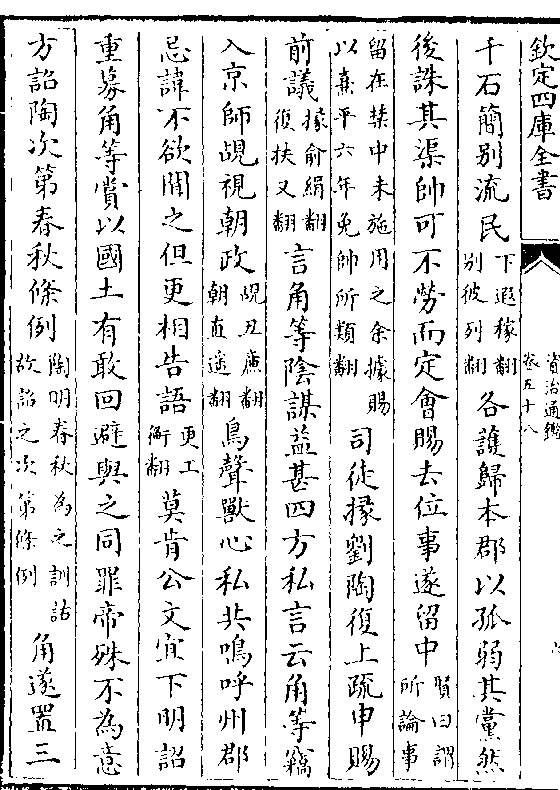 欽定四庫全書
資治通鑑
卷五十八
千石簡別流民下遐稼翻別彼列翻各護歸本郡以孤弱其黨然
後誅其渠帥可不勞而定會賜去位事遂留中賢曰謂所論事
留在禁中未施用之余據賜以熹平六年免帥所類翻司徒掾劉陶復上疏申賜
前議掾俞絹翻復扶又翻言角等陰謀益甚四方私言云角等竊
入京師覘視朝政覘丑亷翻朝直遥翻鳥聲獸心私共鳴呼州郡
忌諱不欲聞之但更相告語更工衡翻莫肯公文宜下明詔
重募角等賞以國土有敢回避與之同罪帝殊不為意
方詔陶次第春秋條例陶明春秋為之訓詁故詔之次第條例角遂置三